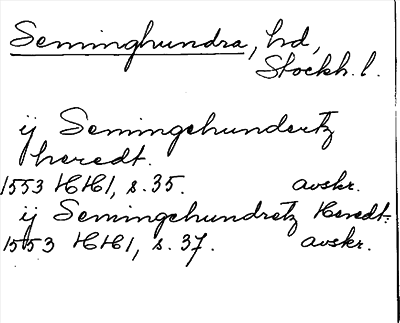 Seminghundra, hd,
Stockh. l.
ij Semingehundertz
heredt.
1553 HH1, s. 35. avskr.
ij Semingehundretz Heredt.
1553 HH1, s. 37. avskr.